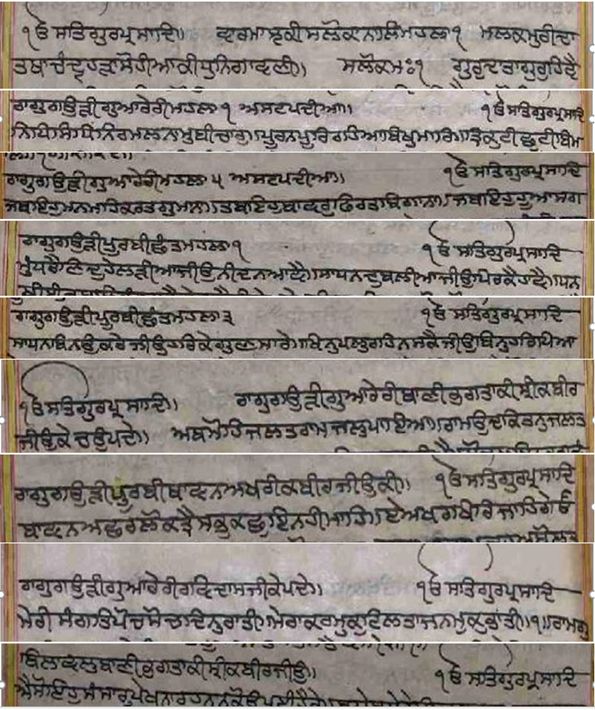 ੴ ਸਤਿਗੁਰਪ੍ਰਸਾਦਿ॥ ਵਾਰਮਾਝਕੀਸਲੋਕਨਾਲਿਮਹਲਾ੧ ਮਲਕਮੁਰੀਦਾ
ਤਥਾਚੰਦ੍ਰਹੜਾਸੋਹੀਆਕੀਧੁਨਿਗਾਵਣੀ॥ ਸਲੋਕਮਃ੧ ਗੁਰੁਦਾਤਾਗੁਰੁਹਿਵੈ
ਰਾਗੁਗਉੜੀਗੁਆਰੇਰੀਮਹਲਾ੧ ਅਸਟਪਦੀਆ॥ ੴ ਸਤਿਗੁਰਪ੍ਰਸਾਦਿ
ਨਿਧਿਸਿਧਿਨਿਰਮਲਨਾਮੁਬੀਚਾਰੁ॥ਪੂਰਨਪੂਰਿਰਹਿਆਬਿਖੁਮਾਰਿ॥ਤ੍ਰਿਕੁਟੀਛੂਟੀਬਿਮ
ਰਾਗੁਗਉੜੀਗੁਆਰੇਰੀਮਹਲਾ ੫ ਅਸਟਪਦੀਆ॥ ੴ ਸਤਿਗੁਰਪ੍ਰਸਾਦਿ
ਜਬਇਹੁਮਨਮਹਿਕਰਤਗੁਮਾਨਾ॥ਤਬਇਹੁਬਾਵਰੁਫਿਰਤਬਿਗਾਨਾ॥ਜਬਇਹੁਹੂਆਸਗ
ਰਾਗੁਗਉੜੀਪੂਰਬੀਛੰਤਮਹਲਾ੧ ੴ ਸਤਿਗੁਰਪ੍ਰਸਾਦਿ
ਮੁੰਧਰੈਣਿਦੁਹੇਲੜੀਆਜੀਉਨੀਦਨਆਵੈ॥ਸਾਧਨਦੁਬਲੀਆਜੀਉਪਿਰਕੈਹਾਵੈ॥ਧਨ
ਰਾਗੁਗਉੜੀਪੂਰਬੀਛੰਤਮਹਲਾ੩ ੴ ਸਤਿਗੁਰਪ੍ਰਸਾਦਿ
ਸਾਧਨਬਿਨਉਕਰੇਜੀਉਹਰਿਕੇਗੁਣਸਾਰੇ॥ਖਿਨੁਪਲੁਰਹਿਨਸਕੈਜੀਉਬਿਨੁਹਰਿਪਿਆ
ੴ ਸਤਿਗੁਰਪ੍ਰਸਾਦਿ॥ ਰਾਗੁਗਉੜੀਗੁਆਰੇਰੀਬਾਣੀਭਗਤਾਕੀਸ੍ਰੀਕਬੀਰ
ਜੀਉਕੇਚਉਪਦੇ॥ ਅਬਮੋਹਿਜਲਤਰਾਮਜਲੁਪਾਇਆ॥ਰਾਮਉਦਕਿਤਨੁਜਲਤ
ਰਾਗੁਗਉੜੀਪੂਰਬੀਬਾਵਨਅਖਰੀਕਬੀਰਜੀਉਕੀ॥ ੴ ਸਤਿਗੁਰਪ੍ਰਸਾਦਿ
ਬਾਵਨਅਛਰਲੋਕਤ੍ਰੈਸਭੁਕਛੁਇਨਹੀਮਾਹਿ॥ਏਅਖਰਖਿਰਿਜਾਹਿਗੇਓ
ਰਾਗੁਗਉੜੀਗੁਆਰੇਰੀਰਵਿਦਾਸਜੀਕੇਪਦੇ॥ ੴ ਸਤਿਗੁਰਪ੍ਰਸਾਦਿ
ਮੇਰੀ ਸੰਗਤਿਪੋਚਸੋਚਦਿਨੁਰਾਤੀ॥ਮੇਰਾਕਰਮੁਕੁਟਿਲਤਾਜਨਮੁਕੁਭਾਂਤੀ॥੧॥ਰਾਮਗੁ
ਬਿਲਾਵਲੁਬਾਣੀਭਗਤਾਕੀਸ੍ਰੀਕਬੀਰਜੀਉ॥ ੴ ਸਤਿਗੁਰਪ੍ਰਸਾਦਿ
ਐਸੋਇਹੁਸੰਸਾਰੁਪੇਖਨਾਰਹਨੁਨਕੋਊਪਈਹੈਰੇ॥